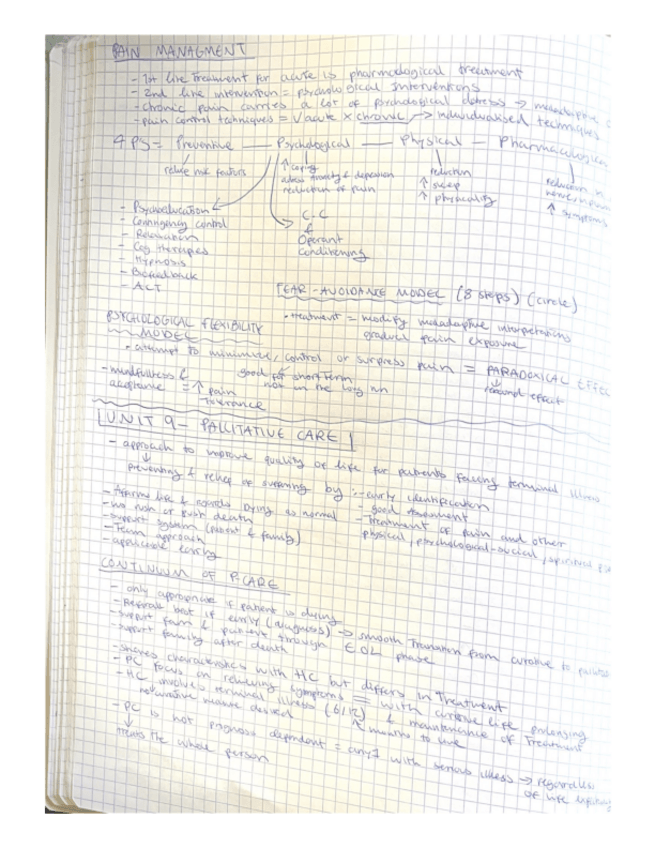 PAIN MANAGMENT
- 1st line treatment for acute is pharmacological treatment
- 2nd line intervention = psychological interventions
- chronic pain carries a lot of psychological distress → maladaptive
- pain control techniques = √ acute × chronic → individualised techniques
4 P'S = Preventive — Psychological — Physical — Pharmacological
reduce risk factors
↑ coping
address anxiety & depression
reduction of pain
reduction
↑ sleep
↑ physicality
reduction in
↑ symptoms
- Psychoeducation
- Contingency control
- Relaxation
- Cog therapies
- Hypnosis
- Biofeedback
- ACT
C.C
&
Operant
Conditioning
FEAR-AVOIDANCE MODEL (8 steps) (circle)
• treatment = modify maladaptive interpretations
gradual pain exposure
PSYCHOLOGICAL FLEXIBILITY
MODEL
• attempt to minimize, control or surpress pain = PARADOXICAL EFFEC
good for short term
not in the long run
rebound effect
- mindfullness &
acceptance = ↑ pain
tolerance
UNIT 9 - PALLITATIVE CARE
- approach to improve quality of life for patients facing terminal illness
↓
preventing & relief of suffering by :- early identification
- good assessment
- treatment of pain and other
physical, psychological-social, spiritual
- Affirms life & regards dying as normal
- no rush or push death
- support system (patient & family)
- Team approach
- applicable early
CONTINUUM OF P.CARE
- only appropriate if patient is dying
- best if early (diagnosis) → smooth transition from curative to
- support fam & patient through EOL phase
- support family after death
- shares characteristics with HC but differs in treatment
- PC focus on relieving symptoms = with curative life prolonging
- HC involves terminal illness (6/12) & maintenance of treatment
↑ months to live
measure desired
- PC is not prognosis dependent = any 1 with serious illness → regardless
of life
↓
treats the whole person